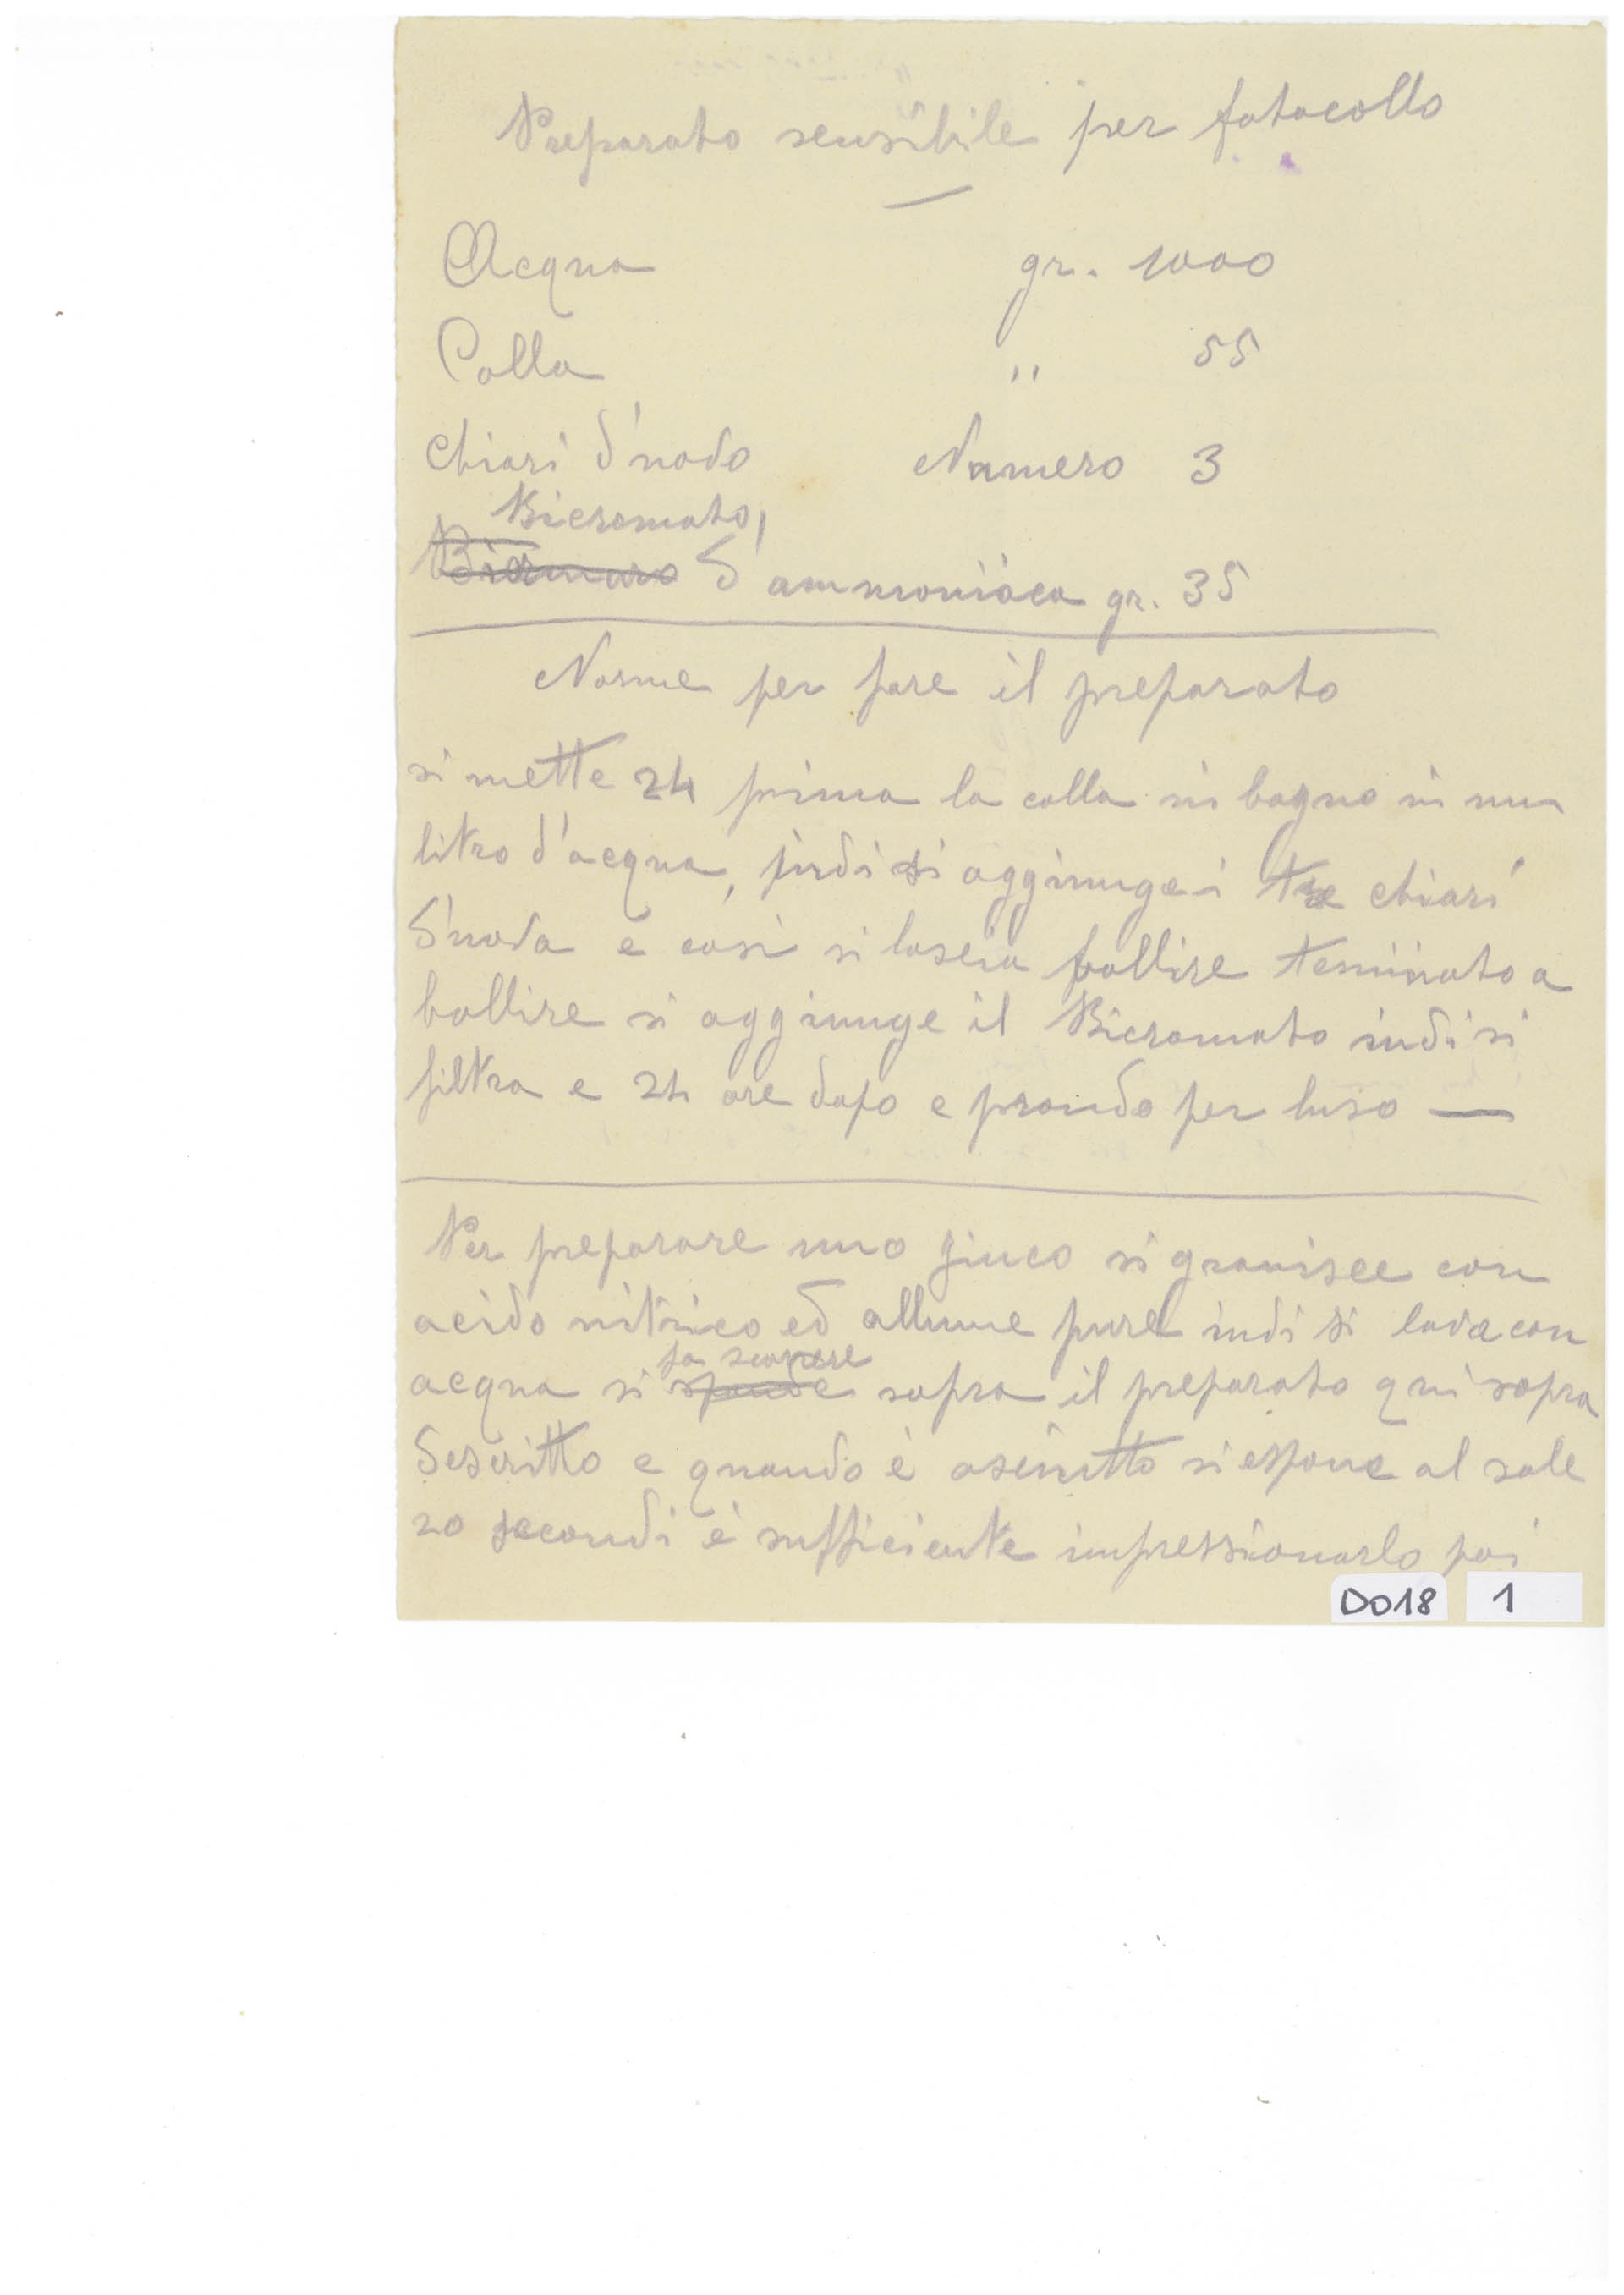 Preparato sensibile per fotocollo
Acqua gr. 1000
Colla " 55
Chiari d'uovo Numero 3
Bicromato
d'ammoniaca gr. 35
Norme per fare il preparato
si mette 24 prima la colla in bagno in un
litro d'acqua, indi si aggiunge i tre chiari
d'uova e così si lascia bollire terminato a
bollire si aggiunge il Bicromato indi si
filtra e 24 ore dopo e prondo per luso —
Per preparare uno zinco si granisce con
acido nitrico ed allume pure indi si lava con
fa scorrere
acqua si spande sopra il preparato qui sopra
descritto e quando è asciutto si espone al sole
20 secondi è sufficiente impressionarlo poi
D018 1